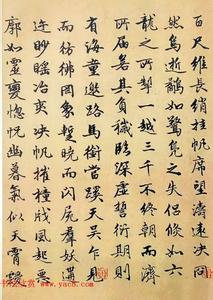 百尺維長綃挂帆席望濤遠決冏
然鳥逝鷸如驚鳧之失侶倏如六
龍之所掣一越三千不終朝而濟
所届若其負穢臨深虛誓愆祈則
有海童邀路馬銜當蹊天吳乍見
而彷彿罔象暫曉而閃尸羣妖遘
迕眇䁱冶夷決帆摧橦戕風起惡
廓如靈變惚怳幽暮氣似天霄靉
书法欣赏 www.yac8.com